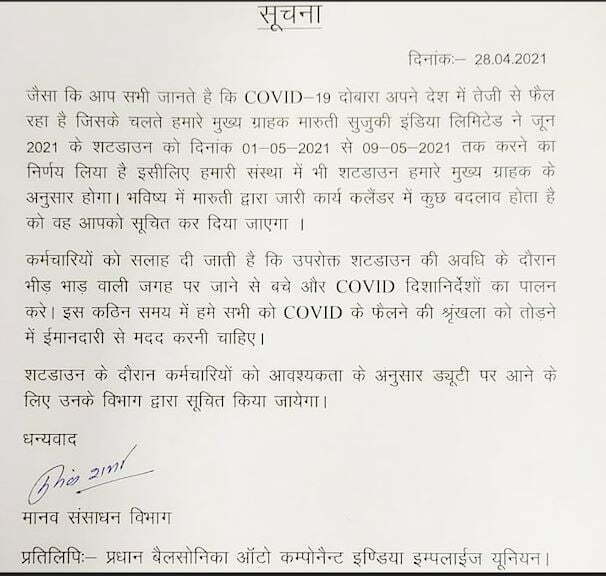 सूचना
दिनांकः– 28.04.2021
जैसा कि आप सभी जानते है कि COVID–19 दोबारा अपने देश में तेजी से फैल
रहा है जिसके चलते हमारे मुख्य ग्राहक मारुती सुजुकी इंडिया लिमिटेड ने जून
2021 के शटडाउन को दिनांक 01–05–2021 से 09–05–2021 तक करने का
निर्णय लिया है इसीलिए हमारी संस्था में भी शटडाउन हमारे मुख्य ग्राहक के
अनुसार होगा। भविष्य में मारुती द्वारा जारी कार्य कलैंडर में कुछ बदलाव होता है
को वह आपको सूचित कर दिया जाएगा ।
कर्मचारियों को सलाह दी जाती है कि उपरोक्त शटडाउन की अवधि के दौरान
भीड़ भाड़ वाली जगह पर जाने से बचे और COVID दिशानिर्देशों का पालन
करे। इस कठिन समय में हमे सभी को COVID के फैलने की श्रृंखला को तोड़ने
में ईमानदारी से मदद करनी चाहिए।
शटडाउन के दौरान कर्मचारियों को आवश्यकता के अनुसार ड्यूटी पर आने के
लिए उनके विभाग द्वारा सूचित किया जायेगा।
धन्यवाद
मानव संसाधन विभाग
प्रतिलिपिः– प्रधान बैलसोनिका ऑटो कम्पोनैन्ट इण्डिया इम्पलाईज यूनियन।